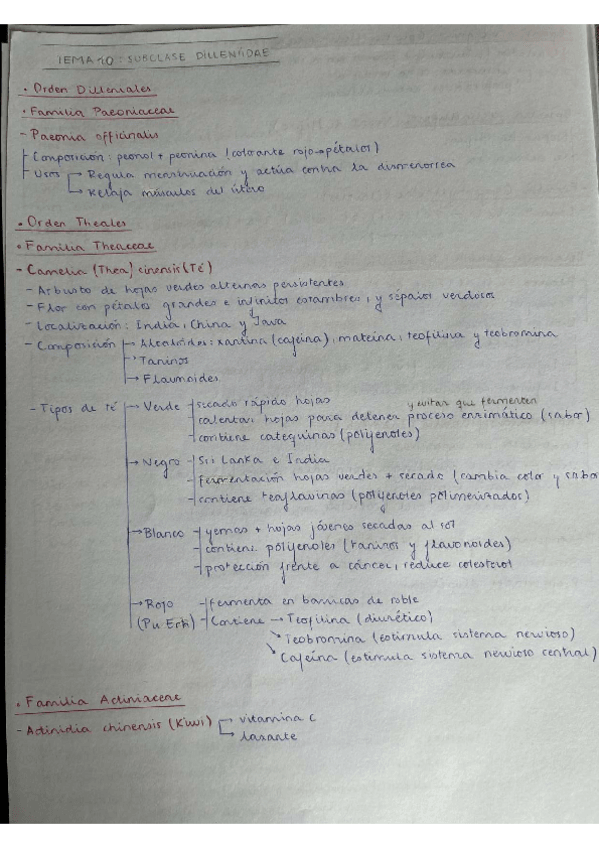 TEMA 10: SUBCLASE DILLENIIDAE
• Orden Dilleniales
• Familia Paeoniaceae
- Paeonia officinalis
Composición: peonol + peonina (colorante rojo → pétalos)
Usos → Regula menstruación y actúa contra la dismenorrea
→ Relaja músculos del útero
• Orden Theales
• Familia Theaceae
- Camelia (Thea) cinensis (Té)
- Arbusto de hojas verdes alternas persistentes
- Flor con pétalos grandes e infinitos estambres, y sépalos verdosos
- Localización: India, China y Java
- Composición → Alcaloides: xantina (cafeína), mateína, teofilina y teobromina
→ Taninos
→ Flavonoides
- Tipos de té → Verde - secado rápido hojas
y evitar que fermenten
- calentar hojas para detener proceso enzimático (sabor)
- contiene catequinas (polifenoles)
→ Negro - Sri Lanka e India
- fermentación hojas verdes + secado (cambia color y sabor
- contiene teaflavinas (polifenoles polimerizados)
→ Blanco - yemas + hojas jóvenes secadas al sol
- contiene polifenoles (taninos y flavonoides)
- protección frente a cáncer, reduce colesterol
→ Rojo - fermenta en barricas de roble
(Pu Erh) - Contiene → Teofilina (diurético)
→ Teobromina (estimula sistema nervioso)
→ Cafeína (estimula sistema nervioso central)
• Familia Actiniaceae
- Actinidia chinensis (Kiwi) → vitamina C
→ laxante